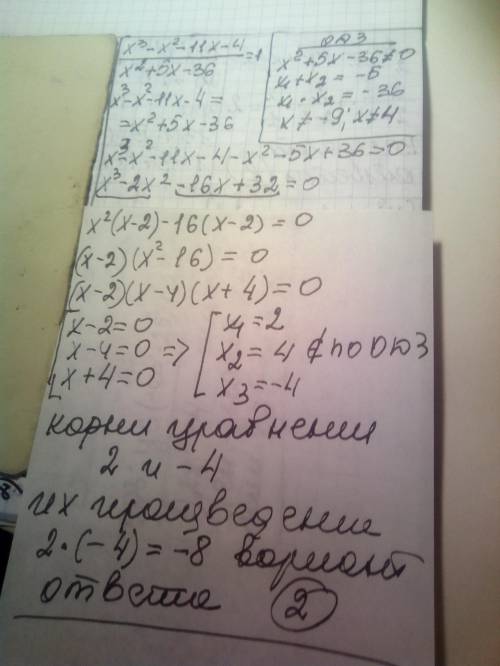 x³-x²-11x-4
———————— = 1
x²+5x-36
x³-x²-11x-4=
=x²+5x-36
ОДЗ
x²+5x-36≠0
x₁+x₂=-5
x₁·x₂=-36
x≠-9; x≠4
x³-x²-11x-4-x²-5x+36=0
x³-2x²-16x+32=0
x²(x-2)-16(x-2)=0
(x-2)(x²-16)=0
(x-2)(x-4)(x+4)=0
[x-2=0
x-4=0 => [x₁=2
x+4=0
x₂=4 ∉ по ОДЗ
x₃=-4
корни уравнении
2 и -4
их произведение
2·(-4)=-8 вариант
ответа 2